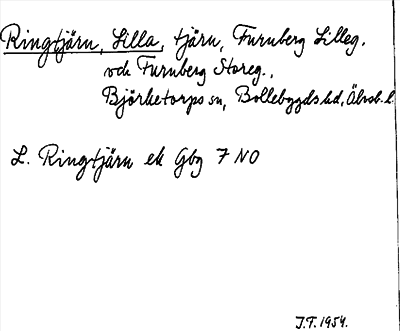 Ringtjärn, Lilla, tjärn, Furnberg Lilleg.
och Furnberg Storeg.,
Björketorps sn, Bollebygds hd, Älvsb. l.
L. Ringtjärn ek Gbg 7 NO
J.F. 1954.